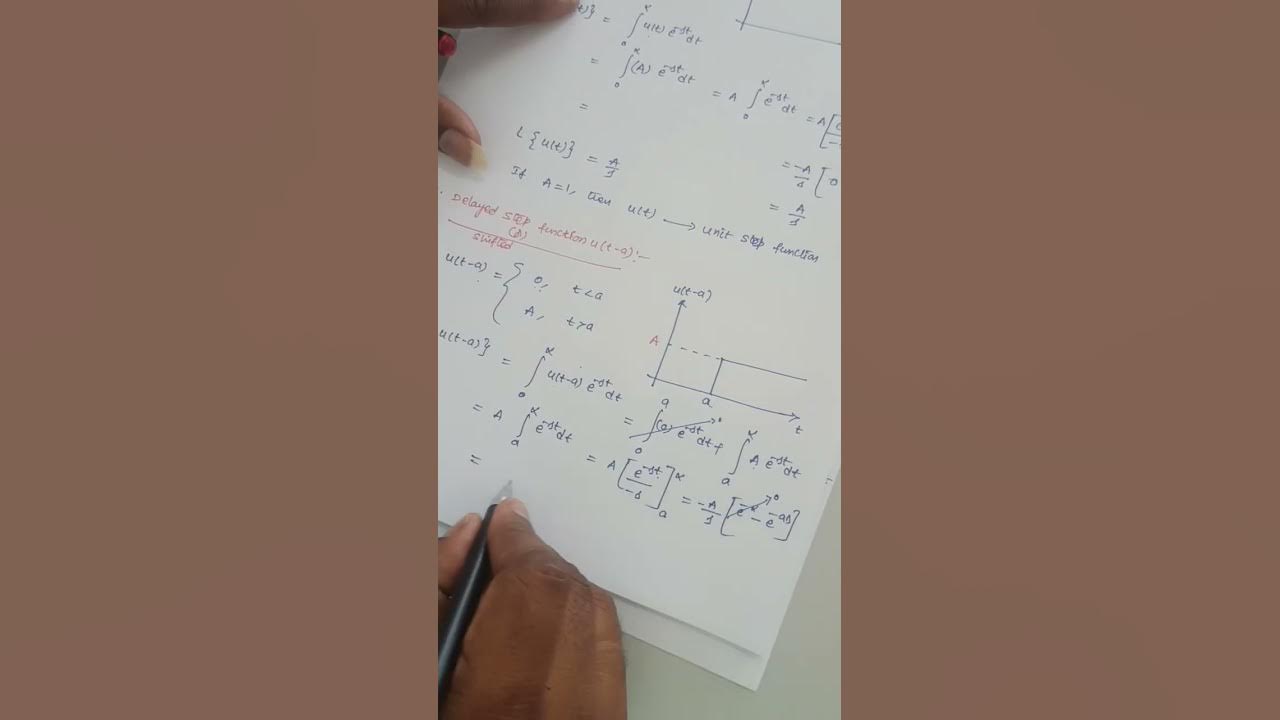 t)} = ∫₀^∝ u(t) e^-st dt
= ∫₀^∝ (A) e^-st dt = A ∫₀^∝ e^-st dt = A [
=
L {u(t)} = A/s
= -A/s [ 0
= A/s
If A=1, then u(t) ⟶ unit step function
Delayed step function u(t-a):-
(or)
shifted
u(t-a) = { 0, t<a
A, t>a
u(t-a)
A
a a
t
u(t-a)} = ∫₀^∝ u(t-a) e^-st dt
= ∫₀^a (0) e^-st dt + ∫ₐ^∝ A e^-st dt
= A ∫ₐ^∝ e^-st dt = A [e^-st/-s]ₐ^∝ = -A/s [e^-∝ - e^-as]
=